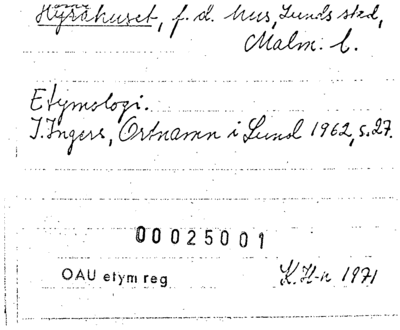 Hyrahuset, f.d. hus, Lunds stad,
Malm. l.
Etymologi.
I. Ingers, Ortnamn i Lund 1962, s. 27.
00025001
OAU etym reg
K. H-n 1971